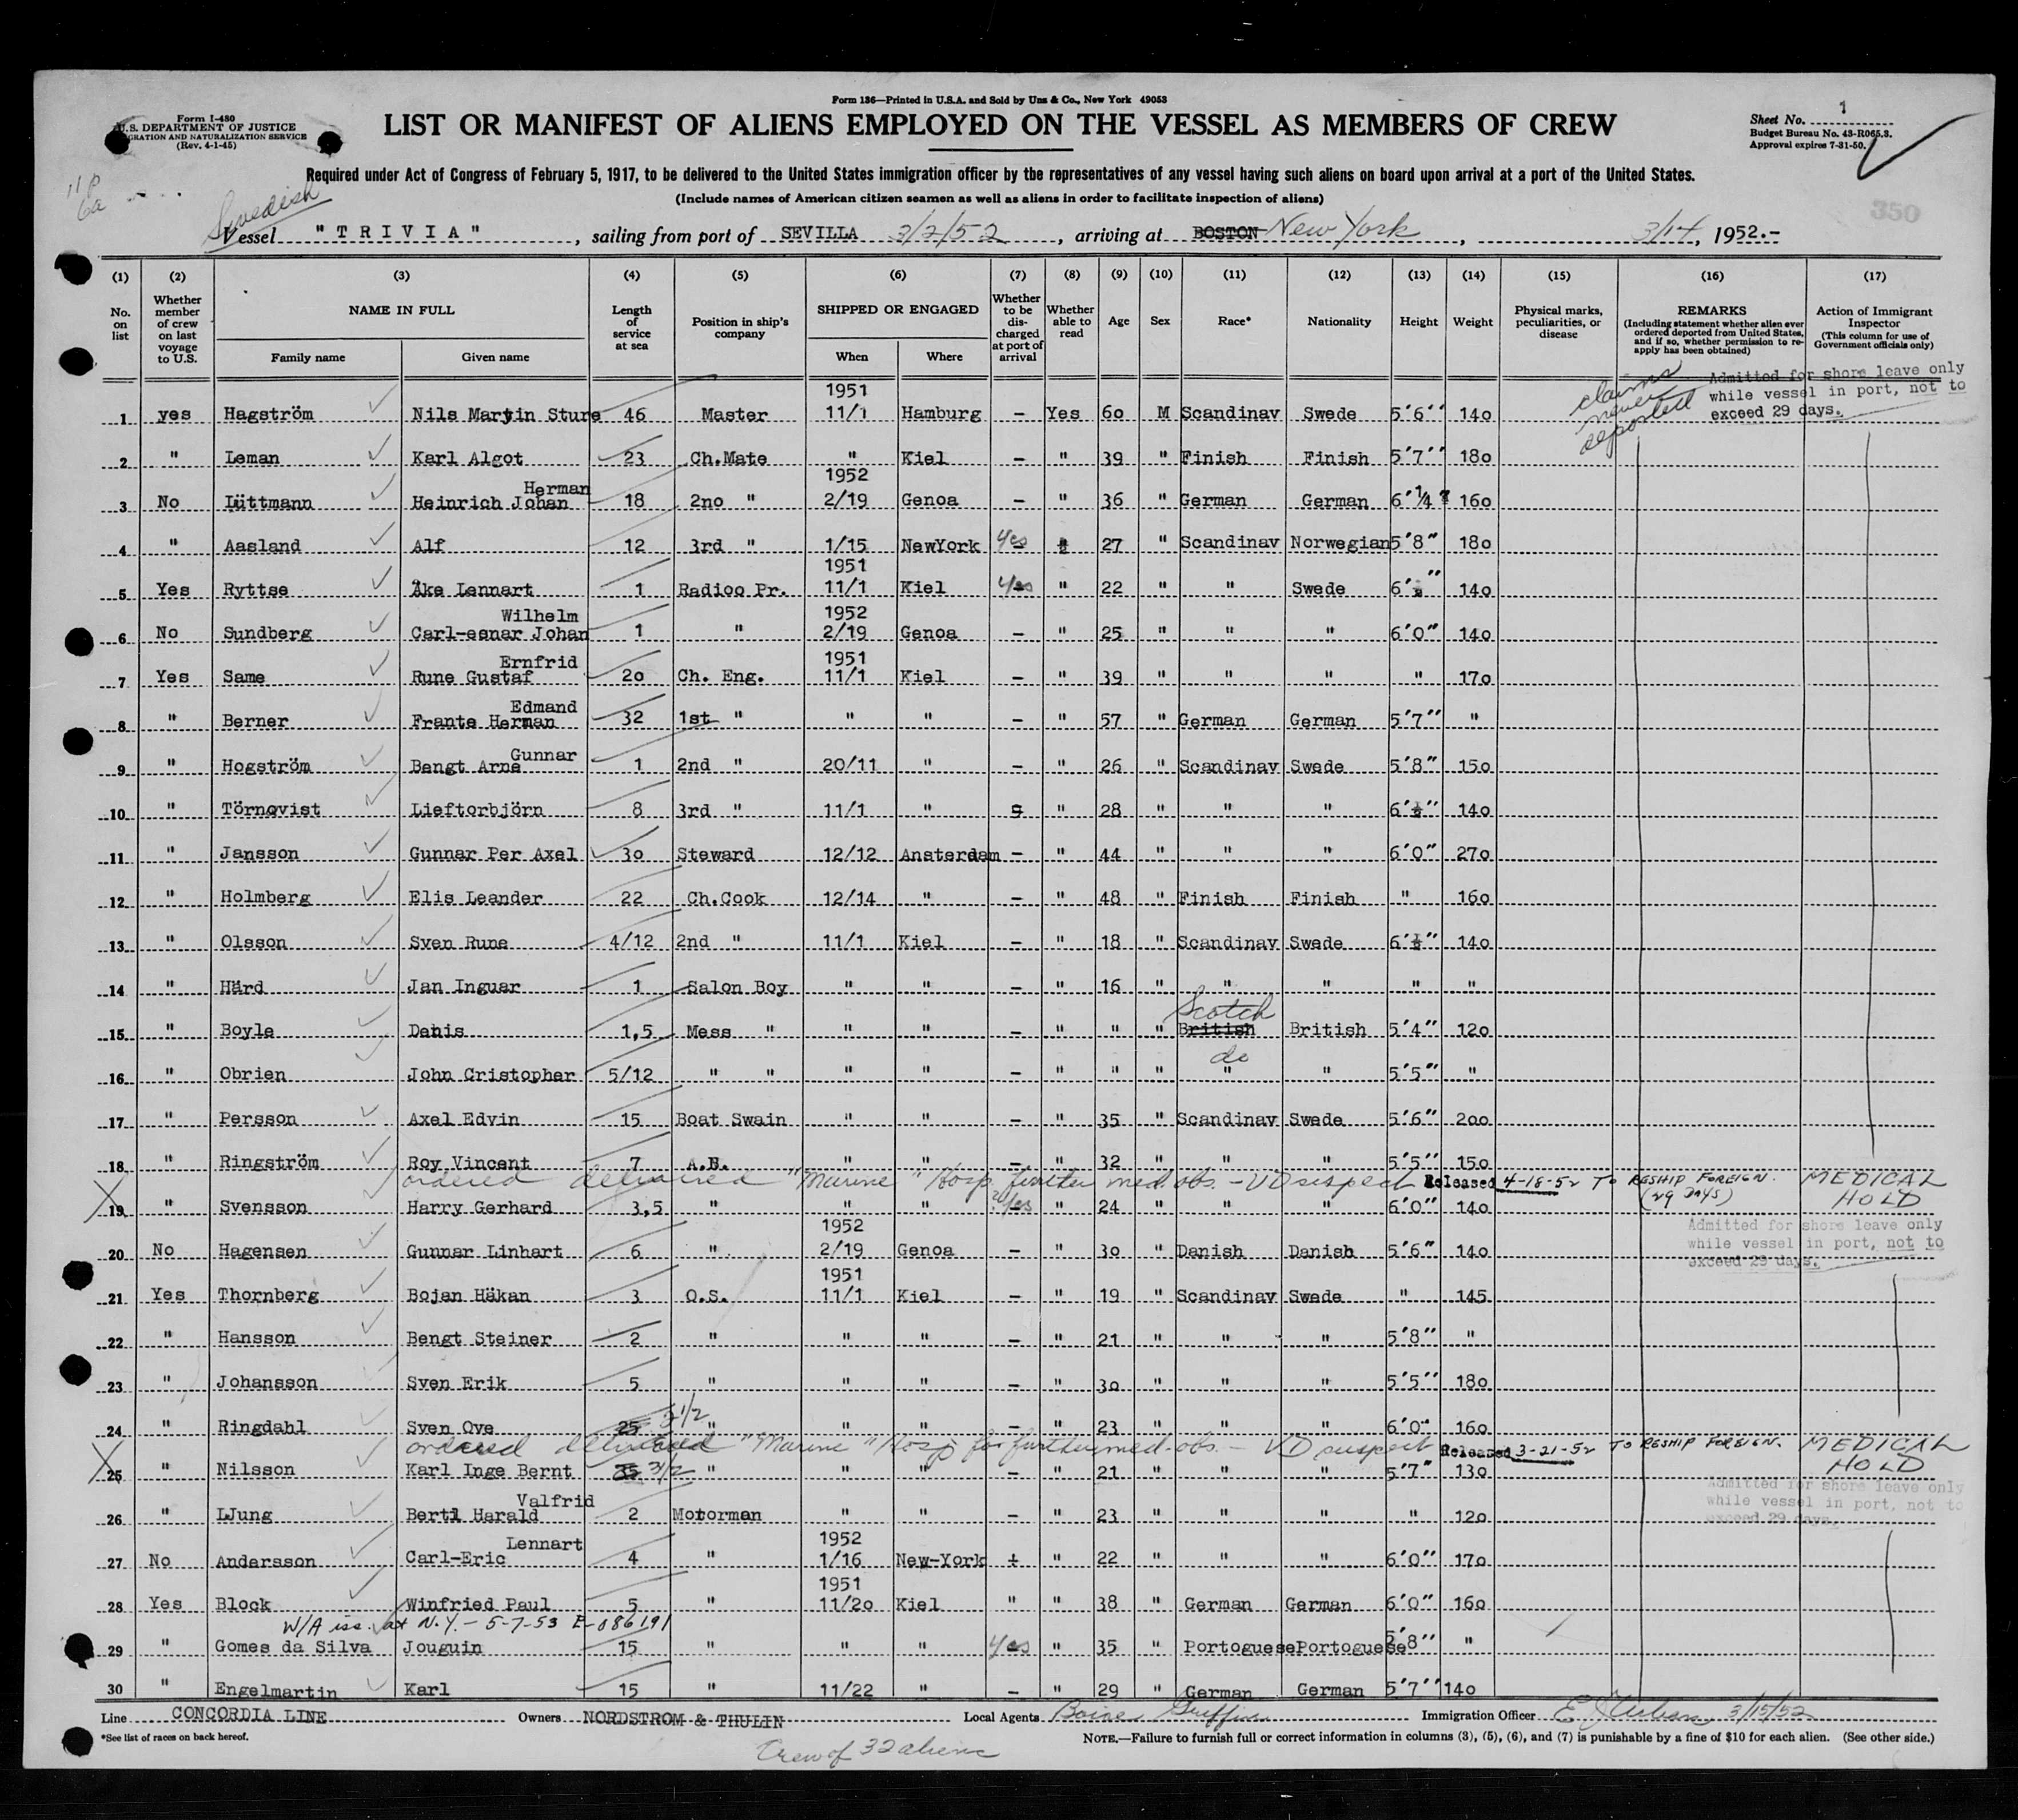 Form 136—Printed in U.S.A. and Sold by Unz & Co., New York 49053
Form I-480
U.S. DEPARTMENT OF JUSTICE
IGRATION AND NATURALIZATION SERVICE
(Rev. 4-1-45)
LIST OR MANIFEST OF ALIENS EMPLOYED ON THE VESSEL AS MEMBERS OF CREW
Sheet No. 1
Budget Bureau No. 43-R065.3.
Approval expires 7-31-50.
Required under Act of Congress of February 5, 1917, to be delivered to the United States immigration officer by the representatives of any vessel having such aliens on board upon arrival at a port of the United States.
(Include names of American citizen seamen as well as aliens in order to facilitate inspection of aliens)
350
Swedish
Vessel "TRIVIA", sailing from port of SEVILLA 3/2/52, arriving at BOSTON New York, 3/14, 1952.-
(1) (2) (3) (4) (5) (6) (7) (8) (9) (10) (11) (12) (13) (14) (15) (16) (17)
No. on list
Whether member of crew on last voyage to U.S.
NAME IN FULL
Family name Given name
Length of service at sea
Position in ship's company
SHIPPED OR ENGAGED
When Where
Whether to be discharged at port of arrival
Whether able to read
Age
Sex
Race*
Nationality
Height
Weight
Physical marks, peculiarities, or disease
REMARKS
(Including statement whether alien ever ordered deported from United States, and if so, whether permission to reapply has been obtained)
Action of Immigrant Inspector
(This column for use of Government officials only)
claims never deported
Admitted for shore leave only
while vessel in port, not to
exceed 29 days.
1951
1 yes Hagström Nils Martin Sture 46 Master 11/1 Hamburg – Yes 60 M Scandinav Swede 5'6'' 140
2 " Leman Karl Algot 23 Ch.Mate " Kiel – " 39 " Finish Finish 5'7'' 180
Herman 1952
3 No Lüttmann Heinrich Johan 18 2no " 2/19 Genoa – " 36 " German German 6'1/4 160
4 " Aasland Alf 12 3rd " 1/15 NewYork Yes " 27 " Scandinav Norwegian 5'8" 180
1951
5 Yes Ryttse Åke Lennart 1 Radioo Pr. 11/1 Kiel Yes " 22 " " Swede 6' " 140
Wilhelm 1952
6 No Sundberg Carl-esnar Johan 1 " 2/19 Genoa – " 25 " " " 6'0" 140
Ernfrid 1951
7 Yes Same Rune Gustaf 20 Ch. Eng. 11/1 Kiel – " 39 " " " " 170
Edmand
8 " Berner Frants Herman 32 1st " " " – " 57 " German German 5'7'' "
Gunnar
9 " Hogström Bengt Arne 1 2nd " 20/11 " – " 26 " Scandinav Swede 5'8" 150
10 " Törnqvist Lieftorbjörn 8 3rd " 11/1 " " 28 " " " 6'½" 140
11 " Jansson Gunnar Per Axel 30 Steward 12/12 Ansterdam – " 44 " " " 6'0" 270
12 " Holmberg Elis Leander 22 Ch.Cook 12/14 " – " 48 " Finish Finish " 160
13 " Olsson Sven Rune 4/12 2nd " 11/1 Kiel – " 18 " Scandinav Swede 6'½" 140
14 " Härd Jan Inguar 1 Salon Boy " " – " 16 " " " " "
Scotch
15 " Boyle Denis 1,5 Mess " " " – " " " British British 5'4" 120
do
16 " Obrien John Cristopher 5/12 " " " " – " " " " " 5'5" "
17 " Persson Axel Edvin 15 Boat Swain " " – " 35 " Scandinav Swede 5'6" 200
18 " Ringström Roy Vincent 7 A.B. " " – " 32 " " " 5'5" 150
ordered delivered "Marine" Hosp. further med. obs. – VD suspect Released 4-18-52 TO RESHIP FOREIGN. (29 DAYS) MEDICAL HOLD
19 " Svensson Harry Gerhard 3,5 " " " Yes " 24 " " " 6'0" 140
1952
Admitted for shore leave only
while vessel in port, not to
exceed 29 days.
20 No Hagensen Gunnar Linhart 6 " 2/19 Genoa – " 30 " Danish Danish 5'6" 140
1951
21 Yes Thornberg Bojan Håkan 3 O.S. 11/1 Kiel – " 19 " Scandinav Swede " 145
22 " Hansson Bengt Steiner 2 " " " – " 21 " " " 5'8" "
23 " Johansson Sven Erik 5 " " " – " 30 " " " 5'5" 180
24 " Ringdahl Sven Ove 25 3 1/2 " " " – " 23 " " " 6'0" 160
ordered delivered "Marine" Hosp for further med. obs. – VD suspect Released 3-21-52 TO RESHIP FOREIGN. MEDICAL HOLD
25 " Nilsson Karl Inge Bernt 35 3/2 " " " – " 21 " " " 5'7" 130
Valfrid
Admitted for shore leave only
while vessel in port, not to
exceed 29 days.
26 " LJung Bertl Harald 2 Motorman " " – " 23 " " " " 120
Lennart 1952
27 No Andersson Carl-Eric 4 " 1/16 New-York " 22 " " " 6'0" 170
1951
28 Yes Block Winfried Paul 5 " 11/20 Kiel " " 38 " German German 6'0" 160
W/A iss. at N.Y. – 5-7-53 E-086191
29 " Gomes da Silva Jouguin 15 " " " Yes " 35 " Portoguese Portoguese 5'8'' "
30 " Engelmartin Karl 15 " 11/22 " – " 29 " German German 5'7'' 140
Line CONCORDIA LINE Owners NORDSTROM & THULIN Local Agents Immigration Officer 3/15/52
*See list of races on back hereof.
Crew of 32 aliens
NOTE.—Failure to furnish full or correct information in columns (3), (5), (6), and (7) is punishable by a fine of $10 for each alien. (See other side.)